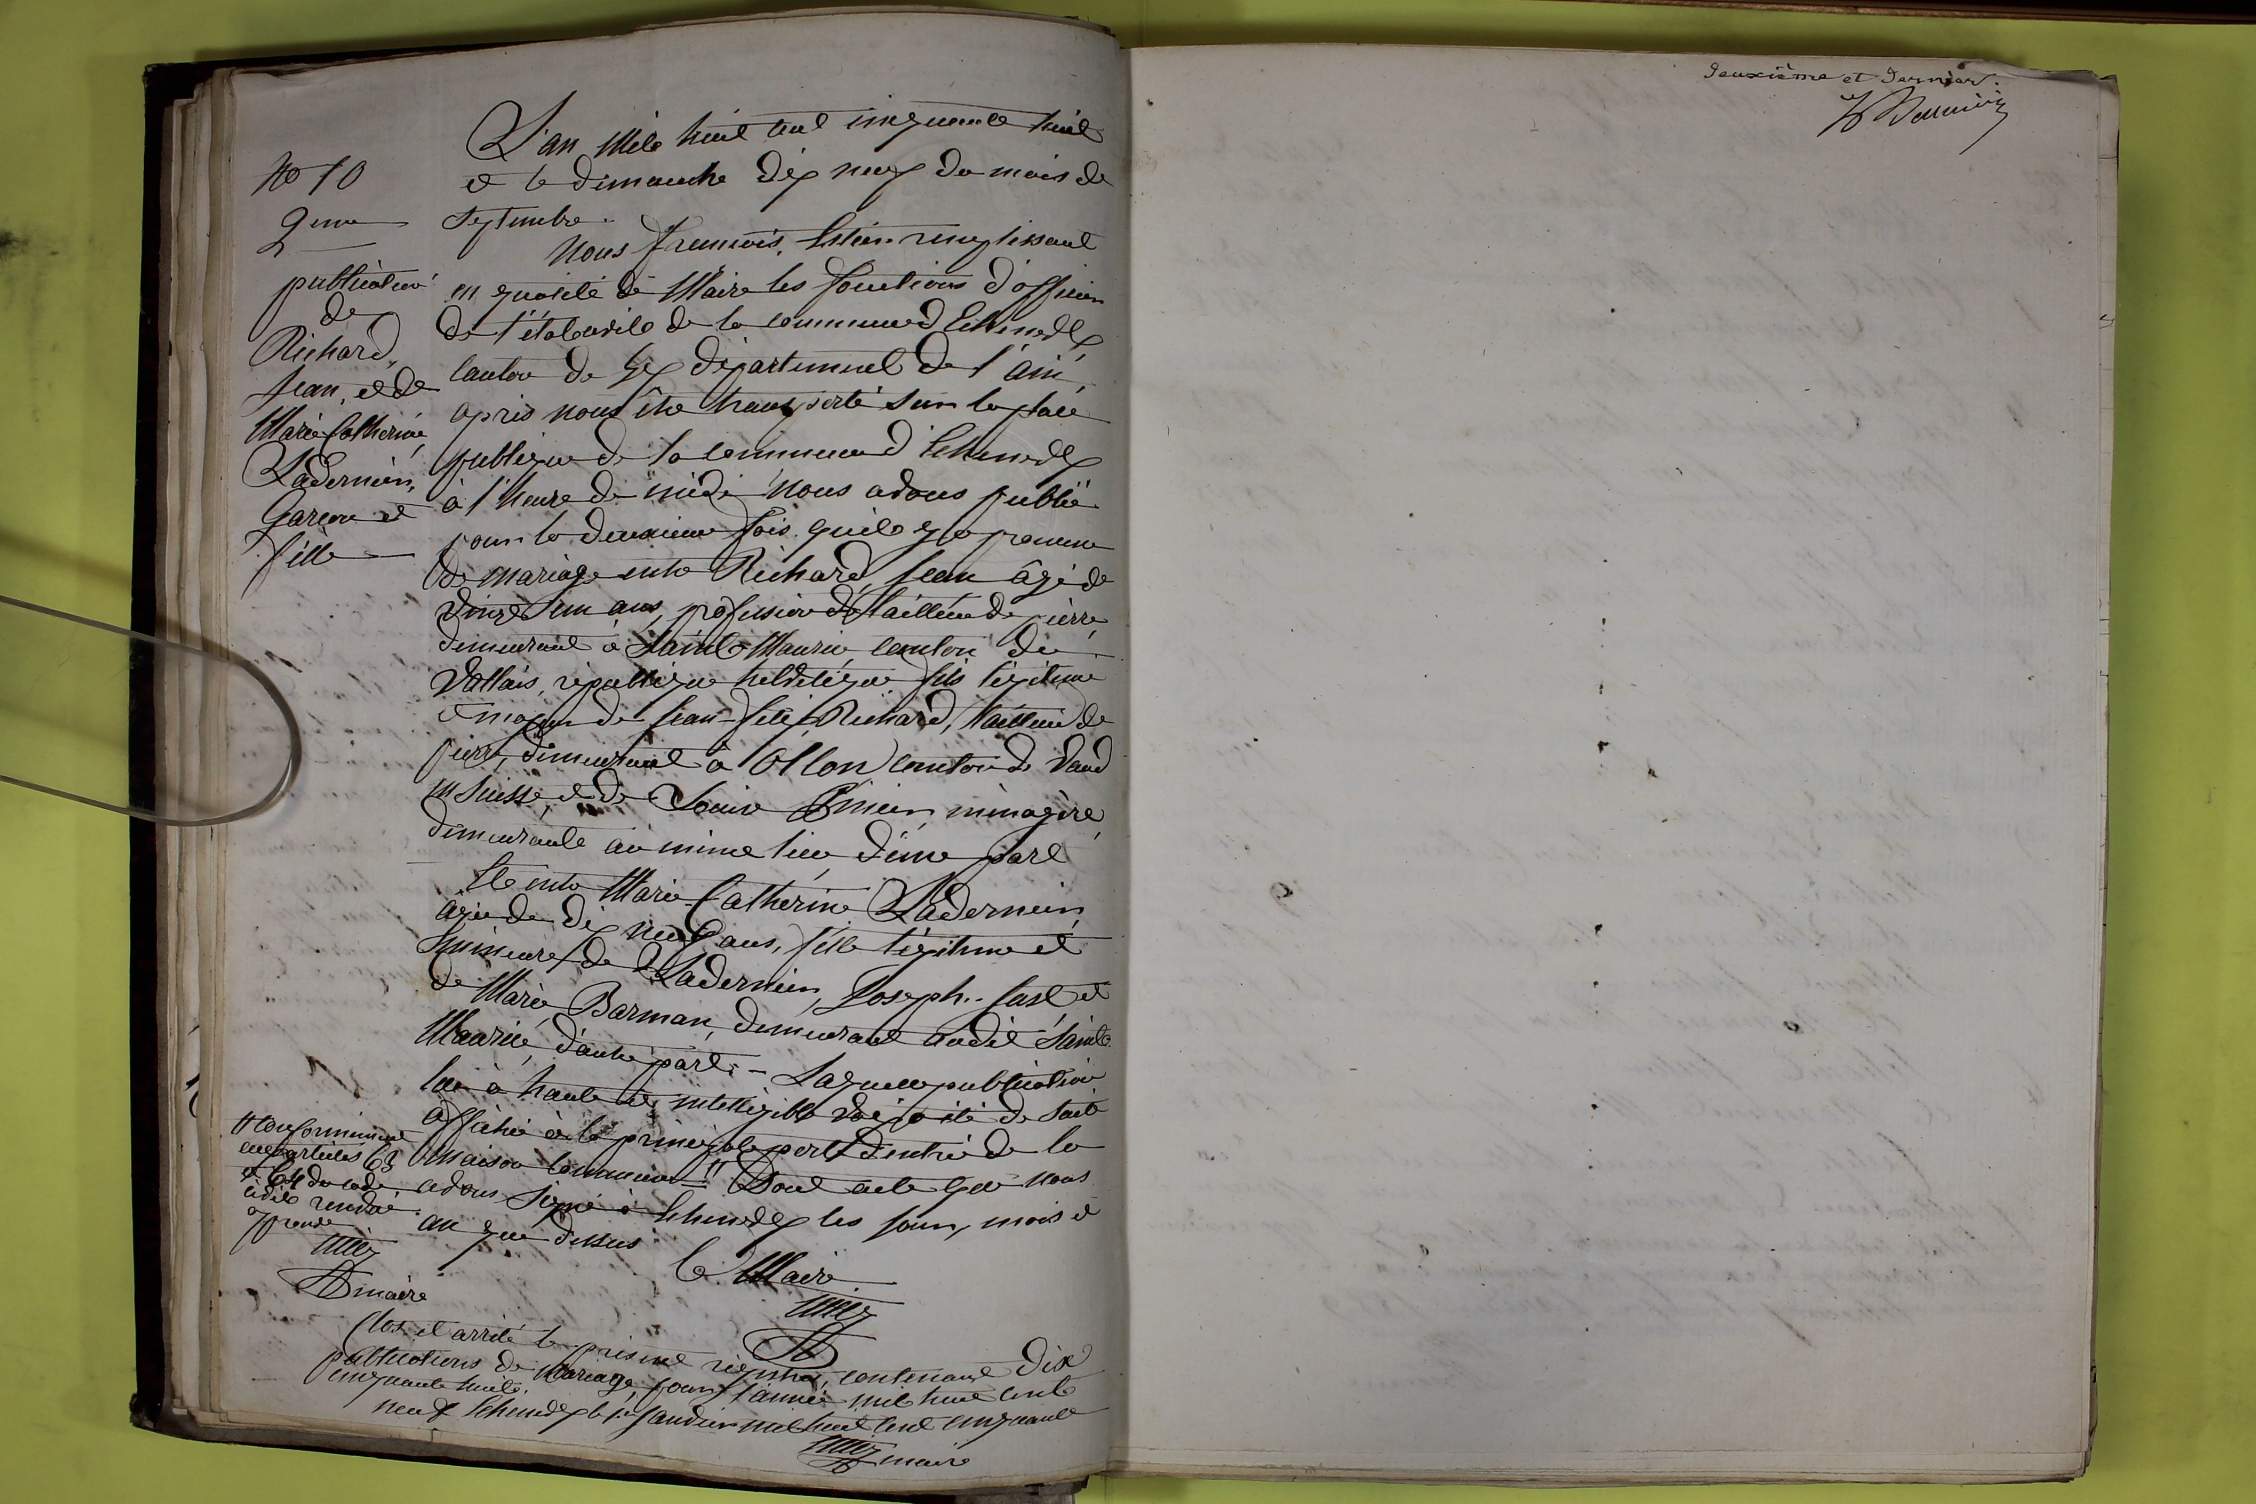 deuxième et dernier.
No 10
2eme
publication
de
Richard,
Jean, et de
Marie Catherine
Ladernier,
Garçon et
fille
L'an mile huit cent cinquante huit
et le dimanche dix neuf du mois de
Septembre.
Nous François, remplissant
en qualité de Maire les fonctions d'officier
de l'état civile de la commune d'Echenevex
canton de Gex département de l'ain,
après nous être transporté sur la place
publique de la commune d'Echenevex
à l'heure de midi nous avons publié
pour la deuxieme fois quile y a promesse
de mariage entre Richard, Jean âgé de
vingt un ans, profession de tailleur de pierre
demeurant à Saint-Maurice canton du
Vallais, république helvétique fils légitime
et majeur de Jean Richard, tailleur de
pierre, demeurant à Ollon canton de Vaud
en Suisse, et de Louise ménagère,
demeurante au même lieu d'une part
Et entre Marie-Catherine Ladernier,
agée de dix neuf ans, fille légitime et
mineure de Ladernier, Joseph et
de Marie Barman, demeurant audit Saint
Maurice, d'autre part. - Laquelle publication
lue à haute et intelligible voix a été de suite
affiché à la principale porte d'entrée de la
maison commune. // Dont acte que nous
avons signé à Echenevex les jour, mois et
an que dessus
le Maire
// Conformément
aux articles 63
et 64 du code
civile renvoi
aprouvé
maire
Clos et arrêté le présent registre, contenant dix
publications de Mariage, pour l'année mil huit cent
cinquante huite.
Echenevex le 1er Janvier mil huit cent cinquante
neuf
maire